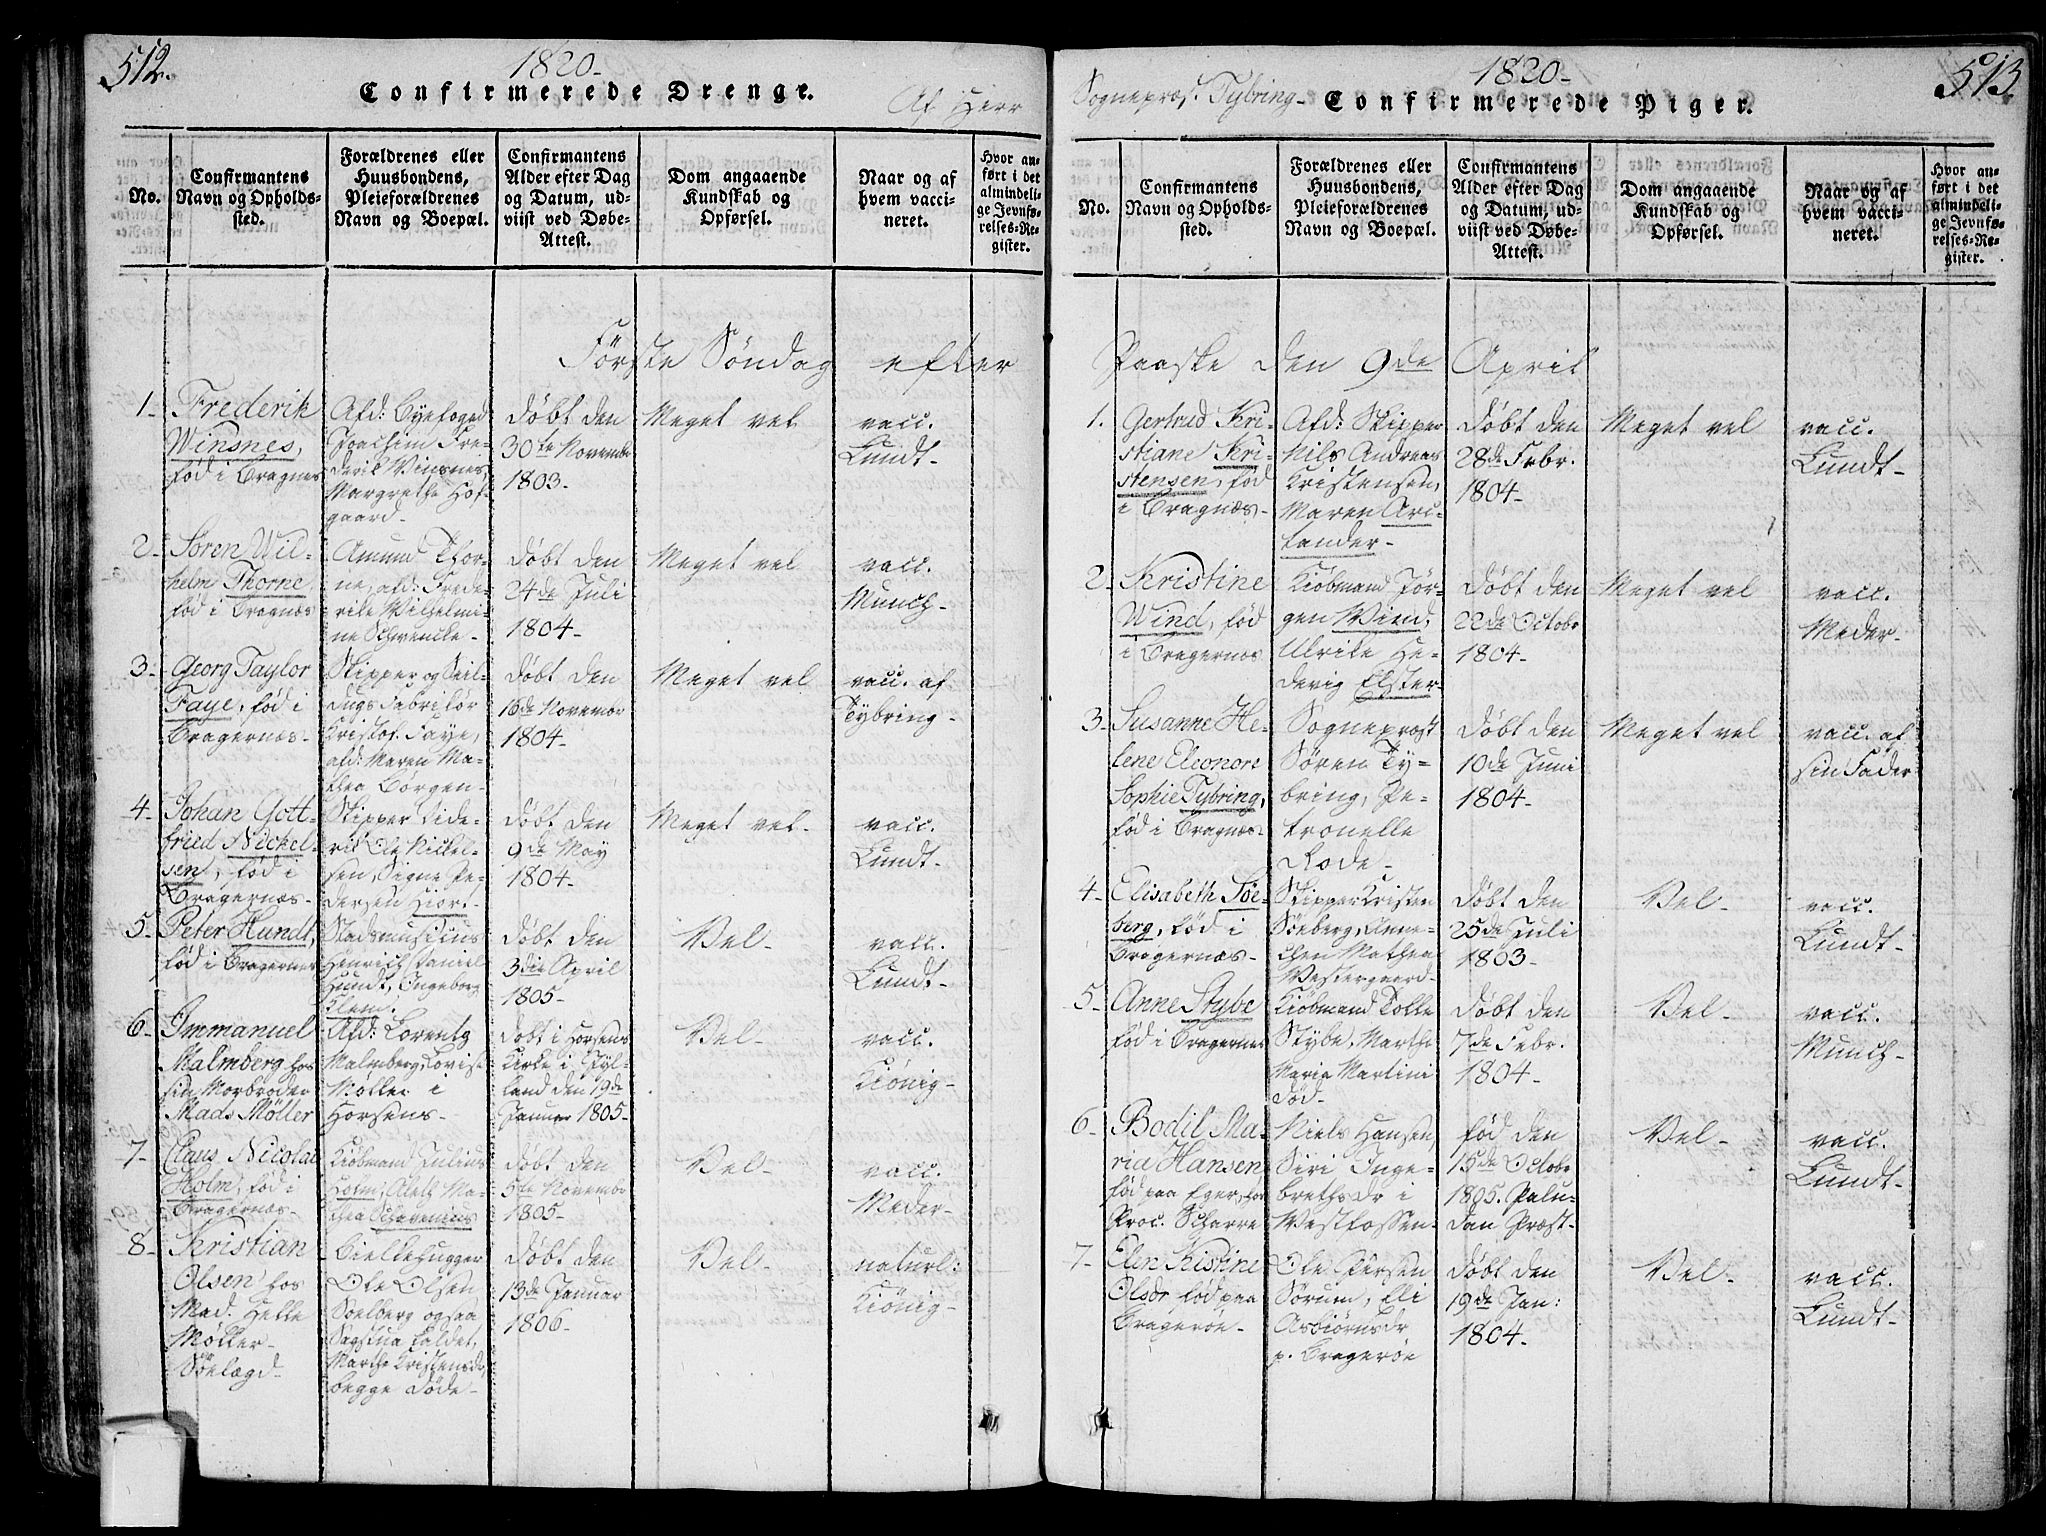 512.
1820-
Confirmerede Drenge.
Af Herr
No.
Confirmantens Navn og Opholdssted.
Forældrenes eller Huusbondens, Pleieforældrenes Navn og Boepæl.
Confirmantens Alder efter Dag og Datum, udviist ved Døbe-Attest.
Dom angaaende Kundskab og Opførsel.
Naar og af hvem vaccineret.
Hvor anført i det almindelige Jevnførelses-Register.
Förste Söndag efter
1-
Frederik
Winsnes,
fød i Bragnes
Afd: Byefoged
Joachim Fre-
derik Winsnes,
Margrethe Hof-
gaard-
Döbt den
30te Novembr
1803-
Meget vel
vacc.
Lundt-
2-
Sören Wil-
helm Thorne,
fød i Bragnæs
Amund Thor-
ne, afd: Frede-
rike Wilhelmi-
ne Schwencke-
Döbt den
24de Juli
1804-
Meget vel
vacc.
Munch-
3-
Georg Taylor
Faye, fød i
Bragernæs-
Skipper og Seil-
dugs Fabrikör
Kristof. Faye,
afd: Maren Ma-
thea Börgen-
Döbt den
16de Novembr
1804-
Meget vel
vacc. af
Tybring-
4-
Johan Gott-
fried Nickel-
sen, fød i
Bragernæs-
Skipper Dide-
rik Ole Nickel-
sen, Signe Pe-
dersen Hiort-
Döbt den
9de May
1804-
Meget vel-
vacc.
Lundt-
5-
Peter Hundt,
fød i Bragernæs
Stadsmusicus
Henrich Daniel
Hundt, Ingeborg
Klem.
Döbt den
3die April
1805-
Vel-
vacc.
Lundt-
6-
Immanuel
Malmberg hos
sin Morbroder
Mads Møller
Afd: Lorentz
Malmberg, Lovise
Møller i
Horsens-
Döbt i Horsens
Kirke i Jyl-
land den 19de
Januar 1805-
Vel-
vacc.
Kiönig-
7-
Claus Nicolai
Holm, fød i
Bragernæs-
Kiöbmand Julius
Holm, Alelz Ma-
thea Schavenius
Döbt den
5te Novembr
1805-
Vel-
vacc.
Meder-
8-
Kristian
Olsen hos
Mad. Helle
Møller
Söelægd-
Bieldehugger
Ole Olsen
Solberg ogsaa
Sagstua kaldet,
Marthe Kristensdr,
begge døde-
Döbt den
13de Januar
1806-
Vel-
naturl:
Kiönig-
Sognepræst Tybring-
1820-
Confirmerede Piger.
513
No.
Confirmantens Navn og Opholdssted.
Forældrenes eller Huusbondens, Pleieforældrenes Navn og Boepæl.
Confirmantens Alder efter Dag og Datum, udviist ved Døbe-Attest.
Dom angaaende Kundskab og Opførsel.
Naar og af hvem vaccineret.
Hvor anført i det almindelige Jevnførelses-Register.
Paaske den 9de April
1.
Gertrud Kri-
stiane Kri-
stensen, fød
i Bragnæs-
Afd: Skipper
Nils Andreas
Kristensen,
Maren Arc-
tander-
Döbt den
28de Febr.
1804-
Meget vel
vacc.
Lundt-
2-
Kristine
Wind, fød
i Bragernæs
Kiöbmand Jör-
gen Wind,
Ulrike He-
devig Elster-
Döbt den
22de Octobr
1804-
Meget vel
vacc.
Meder-
3-
Susanne He-
lene Eleonore
Sophie Tybring,
fød i Bragnæs-
Sognepræst
Sören Ty-
bring, Pe-
tronelle
Rode-
Döbt den
10de Juni
1804-
Meget vel
vacc. af
sin Fader
4-
Elisabeth Söe-
berg, fød i
Bragernæs-
Skipper Kristen
Söeberg, Anne-
chen Mathea
Westergaard-
Döbt den
25de Juli
1803-
Vel-
vacc.
Lundt-
5-
Anne Stybe
fød i Bragernæs
Kiöbmand Tolle
Stybe, Marthe
Maria Martini
död-
Döbt den
7de Febr.
1804-
Vel-
vacc.
Munch-
6-
Bodil Ma-
ria Hansen
fød paa Eger, hos
Proc. Scharre
Niels Hansen,
Siri Inge-
brethsdr i
Westfossen-
fød den
15de Octobr
1805. Palu-
dan Præst-
Vel-
vacc.
Lundt-
7-
Elen Kistine
Olsdr fød paa
Bragerøe-
Ole Iversen
Sörum, Eli
Asbiörnsdr
p. Bragerøe
Döbt den
19de Jan:
1804-
Vel-
vacc.
Lundt-